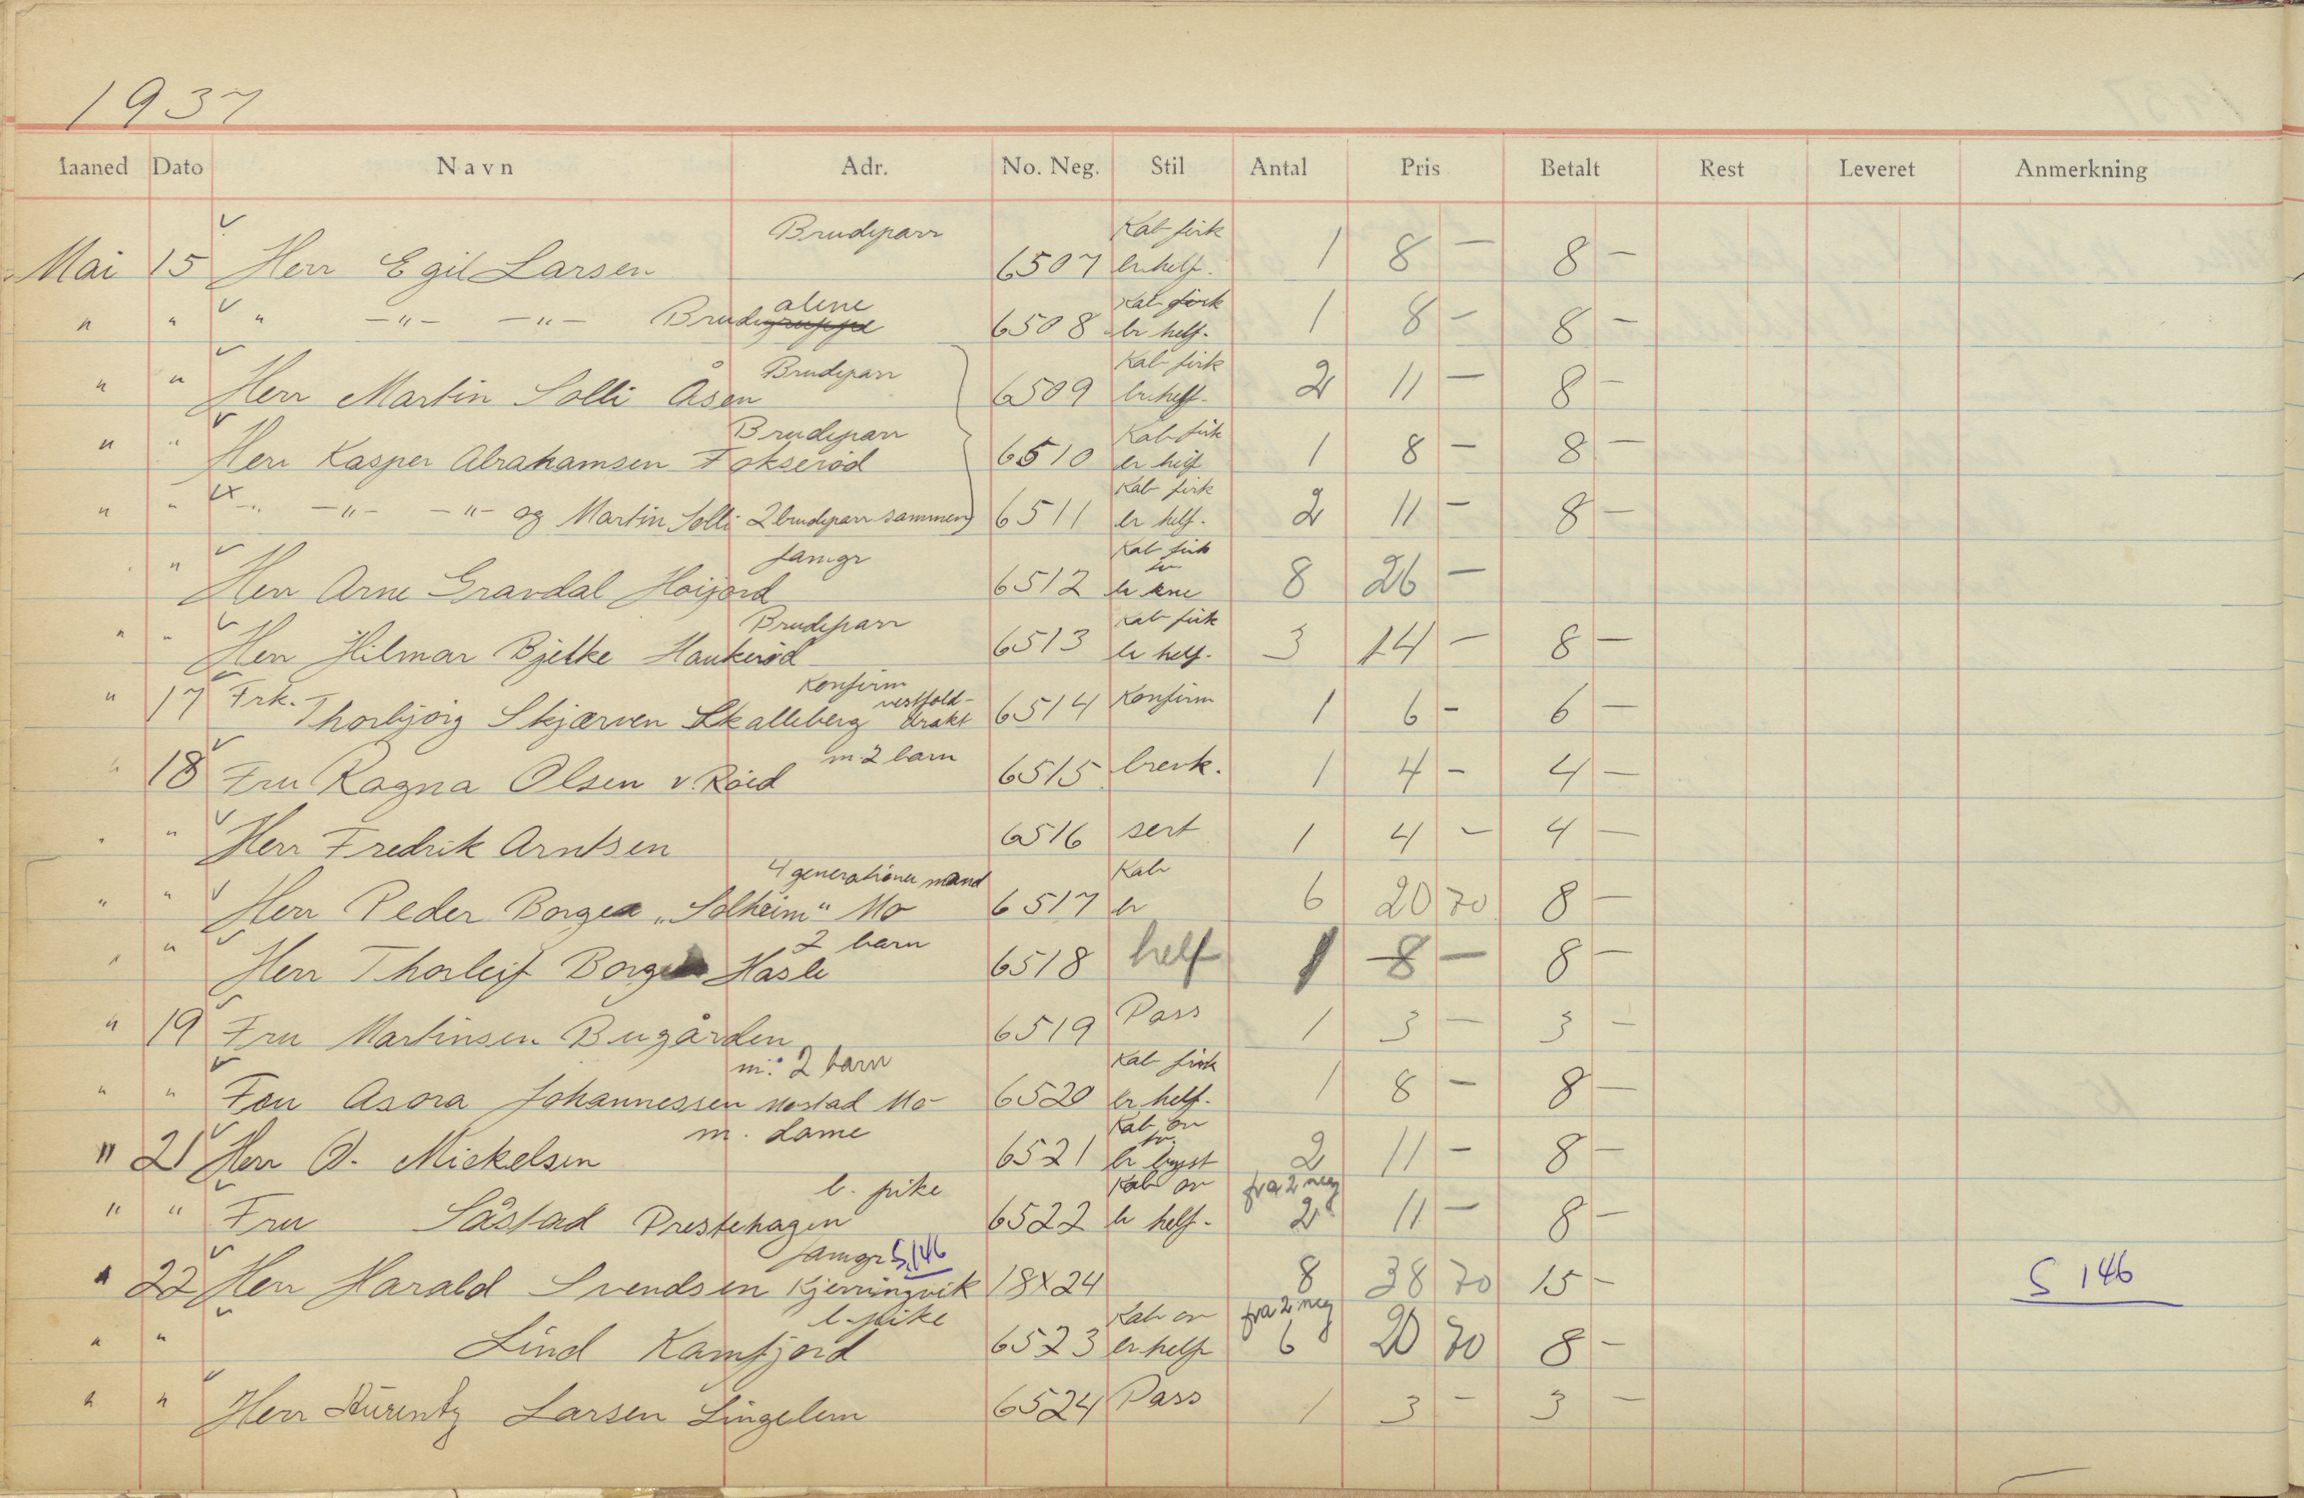 1937
Maaned Dato Navn Adr. No. Neg. Stil Antal Pris Betalt Rest Leveret Anmerkning
Brudeparr Kab firk
Mai 15 Herr Egil Larsen 6507 br. helf. 1 8 — 8 —
alene Kab firk
" " " —"— —"— Brudegruppe 6508 br helf. 1 8 — 8 —
Brudeparr Kab firk
" " Herr Martin Solli Åsen 6509 br. helf. 2 11 — 8 —
Brudeparr Kab firk
" " Herr Kasper Abrahamsen Fokserød 6510 br helf 1 8 — 8 —
Kab firk
" " —"— —"— —"— og Martin Solli 2 brudeparr sammen 6511 br helf. 2 11 — 8 —
famgr Kab firk
" Herr Arne Gravdal Høijord 6512 br kne 8 26 —
Brudeparr Kab firk
" " Herr Hilmar Bjelke Haukerød 6513 br helf. 3 14 — 8 —
Konfirm
" 17 Frk. Thorbjørg Skjærven Skalleberg vestfold-drakt 6514 Konfirm 1 6 - 6 —
m 2 barn
" 18 Fru Ragna Olsen v. Röed 6515 brevk. 1 4 - 4 —
" " Herr Fredrik Arntsen 6516 sert 1 4 - 4 —
4 generationer mand Kab
" " Herr Peder Borgea „Solheim" Mo 6517 br 6 20 70 8 —
2 barn
" " Herr Thorleif Hasle 6518 helf 1 8 — 8 —
" 19 Fru Martinsen Bugården 6519 Pass 1 3 — 3 —
m. 2 barn Kab firk
" " Fru Asora Johannessen Mostad Mo 6520 br helf. 1 8 — 8 —
m. dame Kab ov
" 21 Herr O. Mickelsen 6521 br byst 2 11 - 8 —
l. pike Kab ov fra 2 neg
" " Fru Såstad Prestehagen 6522 br helf. 2 11 — 8 —
famgr S.146
" 22 Herr Harald Svendsen Kjerringvik 18x24 8 38 70 15 - S 146
l. pike Kab ov fra 2 neg
" " Lind Kamfjord 6523 br helf 6 20 70 8 —
" " Herr Larsen Lingelem 6524 Pass 1 3 - 3 —